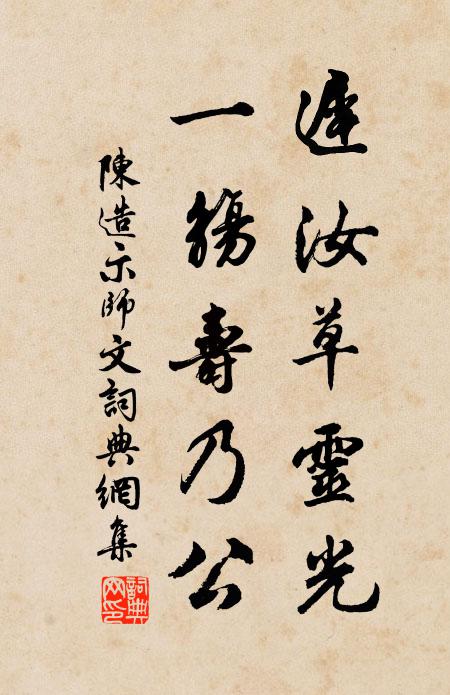 遲汝草靈光
一觴壽乃公
陳造示師文詞典網集
詞典網印